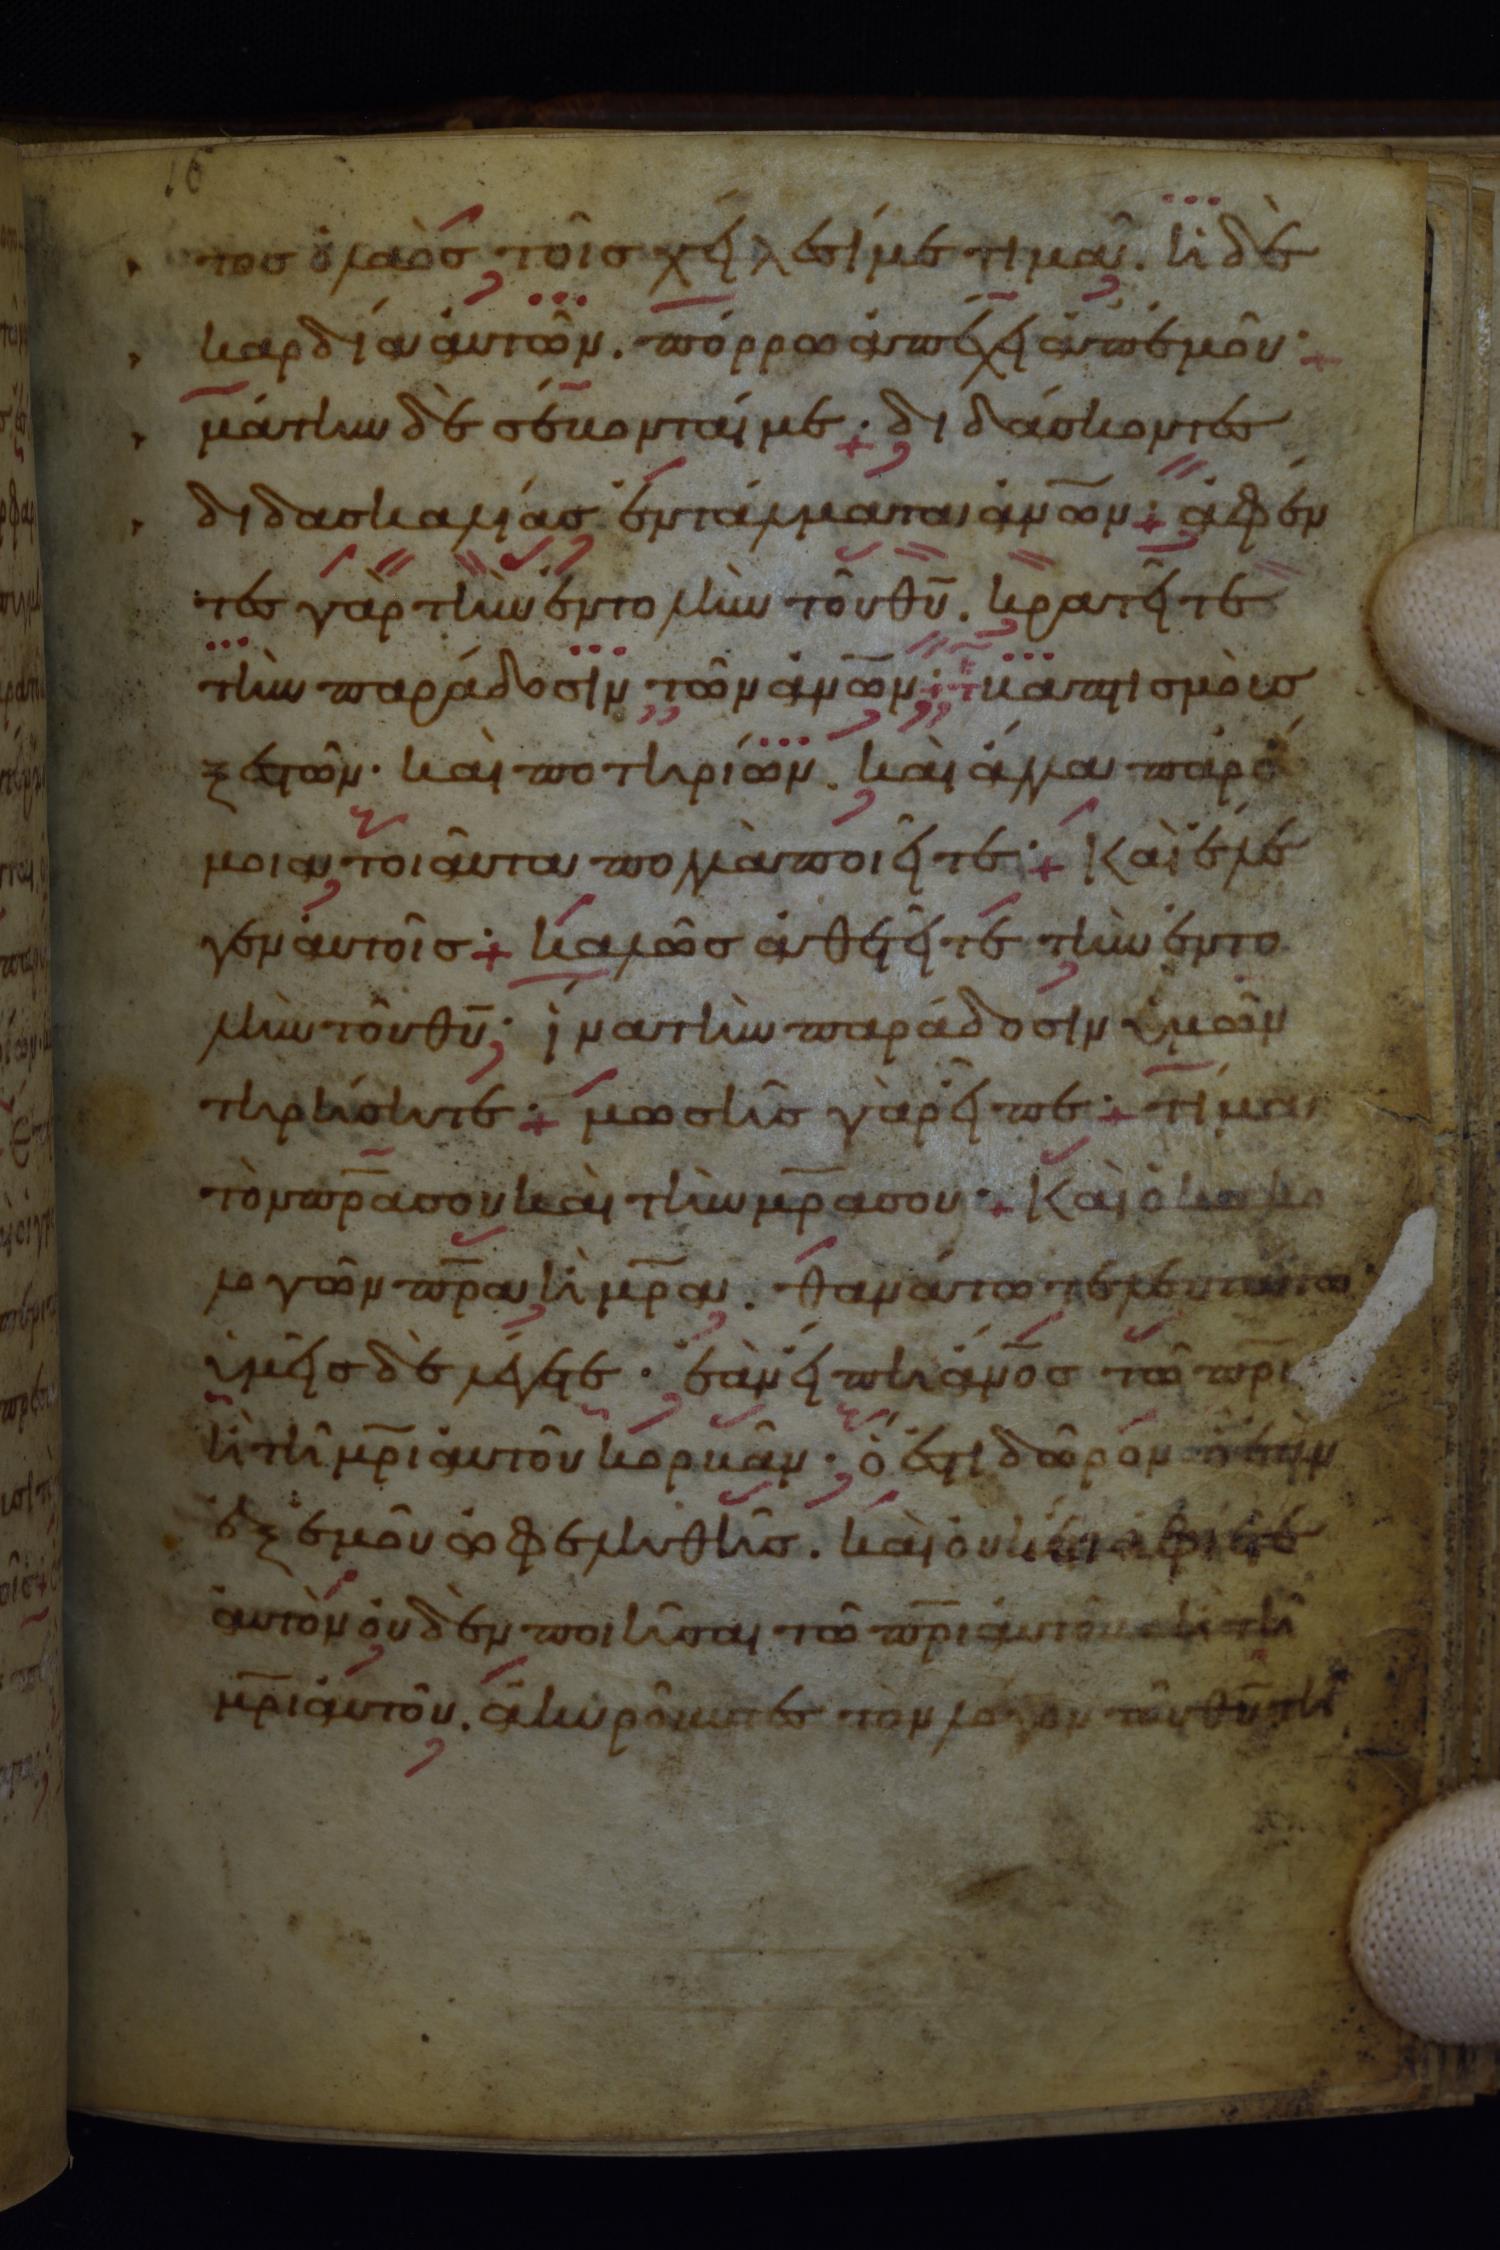 16
τος ὁ λαὸς τοῖς χείλεσί με τιμᾶ. ἡ δὲ
καρδία αὐτῶν. πόρρω ἀπέχει ἀπ' ἐμοῦ·
μάτην δὲ σέβονταί με· διδάσκοντες
διδασκαλίας ἐντάλματα ἀν̅ων· ἀφέν
τες γὰρ τὴν ἐντολὴν τοῦ θυ̅. κρατεῖτε
τὴν παράδοσιν τῶν ἀν̅ων· βαπτισμοὺς
ξεστῶν· καὶ ποτηρίων. καὶ ἄλλα παρό
μοια τοιαῦτα πολλὰ ποιεῖτε· Καὶ ἔλε
γεν αὐτοῖς· καλῶς ἀθετεῖτε τὴν ἐντο
λὴν τοῦ θυ̅· ἵνα τὴν παράδοσιν ὑμῶν
τηρήσητε· μωσῆς γὰρ εἶπε· τίμα
τὸν πρ̅α σου καὶ τὴν μρ̅α σου· Καὶ ὁ κακο
λογῶν πρ̅α ἢ μρ̅α. θανάτω τελευτάτω·
ὑμεῖς δὲ λέγετε· ἐὰν εἴπη ἄν̅ος τῶ πρ̅ι
ἢ τῆ μρ̅ι αὐτοῦ κορβᾶν· ὅ ἐστι δῶρον ὃ ἐὰν
ἐξ ἐμοῦ ὠφεληθῆς. καὶ οὐκέτι ἀφίετε
αὐτὸν οὐδὲν ποιῆσαι τῶ πρ̅ι αὐτοῦ ἢ τῆ
μρ̅ι αὐτοῦ. ἀκυροῦντες τὸν λόγον τοῦ θυ̅ τῆ